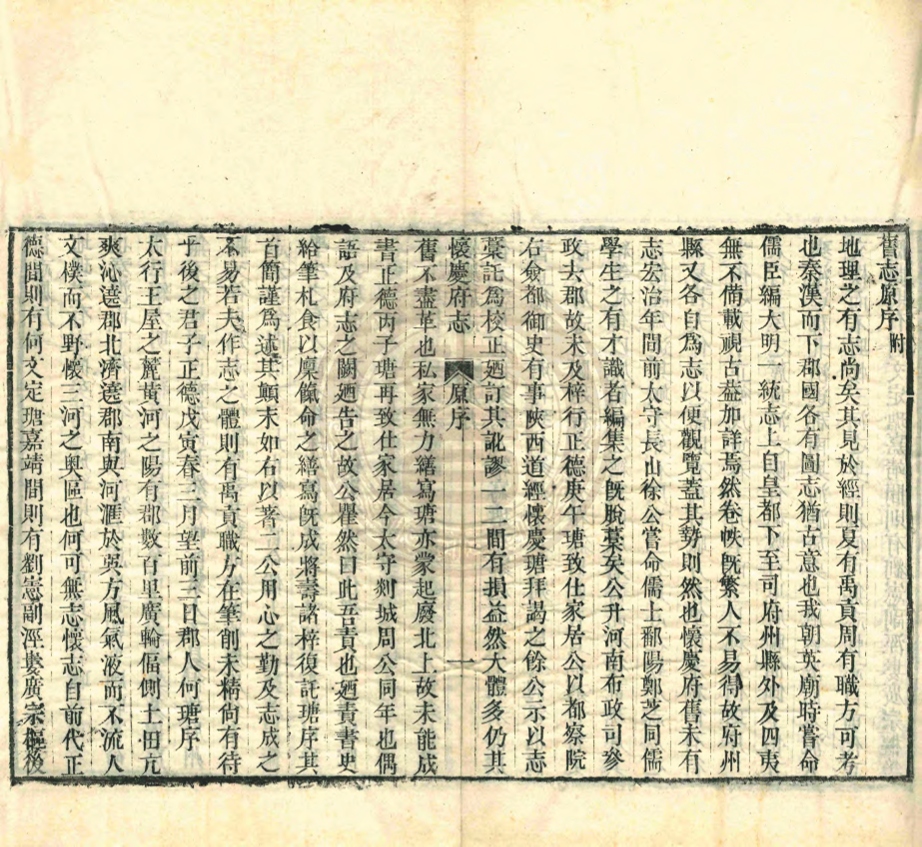 舊志原序 附
地理之有志尚矣其見於經則夏有禹貢周有職方可考
也秦漢而下郡國各有圖志猶古意也我朝英廟時嘗命
儒臣編大明一統志上自皇都下至司府州縣外及四夷
無不備載視古葢加詳焉然卷帙旣繁人不易得故府州
縣又各自爲志以便觀覽葢其勢則然也懷慶府舊未有
志宏治年間前太守長山徐公嘗命儒士鄱陽鄭芝同儒
學生之有才識者編集之旣脫藁矣公升河南布政司參
政去郡故未及梓行正德庚午瑭致仕家居公以都察院
右僉都御史有事陝西道經懷慶瑭拜謁之餘公示以志
藁託爲校正廼訂其訛謬一二間有損益然大體多仍其
懷慶府志 原序 一
舊不盡革也私家無力繕寫瑭亦蒙起廢北上故未能成
書正德丙子瑭再致仕家居今太守剡城周公同年也偶
語及府志之闕廼告之故公瞿然曰此吾責也廼責書史
給筆札食以廩餼命之繕寫旣成將壽諸梓復託瑭序其
首簡謹爲述其顛末如右以著二公用心之勤及志成之
不易若夫作志之體則有禹貢職方在筆削未精尙有待
乎後之君子正德戊寅春三月望前三日郡人何瑭序
太行王屋之麓黃河之陽有郡數百里廣輪偪側土田亢
爽沁遶郡北濟遶郡南與河滙於吳方風氣液而不流人
文樸而不野懷三河之奧區也何可無志懷志自前代正
德間則有何文定瑭嘉靖間則有劉憲副涇婁廣宗樞後